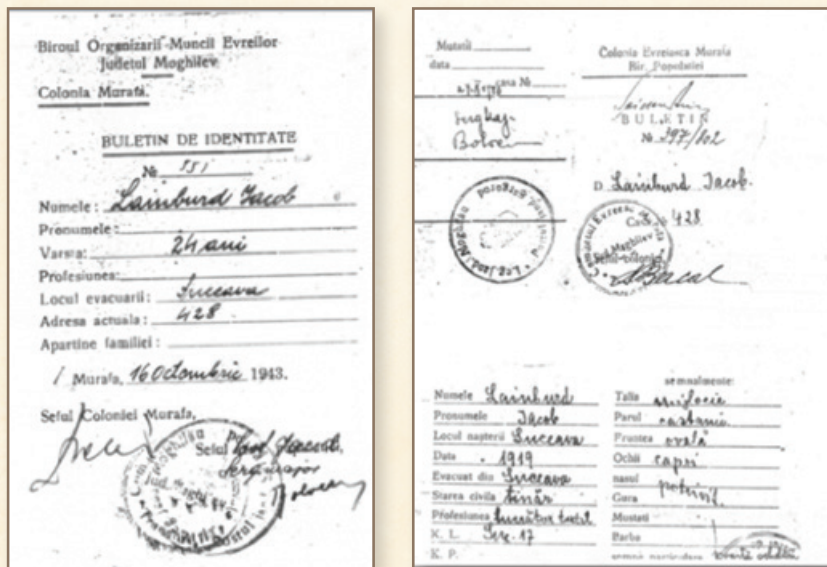 Biroul Organizarii Muncii Evreilor
Judetul Moghilev
Colonia Murafa.
BULETIN DE IDENTITATE
№ 551
Numele: Lainburd Jacob
Pronumele:
Varsta: 24 ani
Profesiunea:
Locul evacuarii: Suceava
Adresa actuala: 428
Apartine familiei:
Murafa, 16 Octombrie 1943.
Seful Coloniei Murafa,
Seful
Mutatii
data
casa №
Colonia Evreiasca Murafa
Bir. Populatiei
BULETIN
№ 297/802
D. Lainburd Jacob.
Casa № 428
Seful coloniei
Numele Lainburd
Pronumele Jacob
Locul nașterii Suceava
Data 1919
Evacuat din Suceava
Starea civila tânăr
Profesiunea lucrător textil
K. L.
K. P.
semnalmente:
Talia mijlocie
Parul castaniu
Fruntea ovală
Ochii caprii
nasul potrivit
Gura
Mustati
Barba
semne particulare